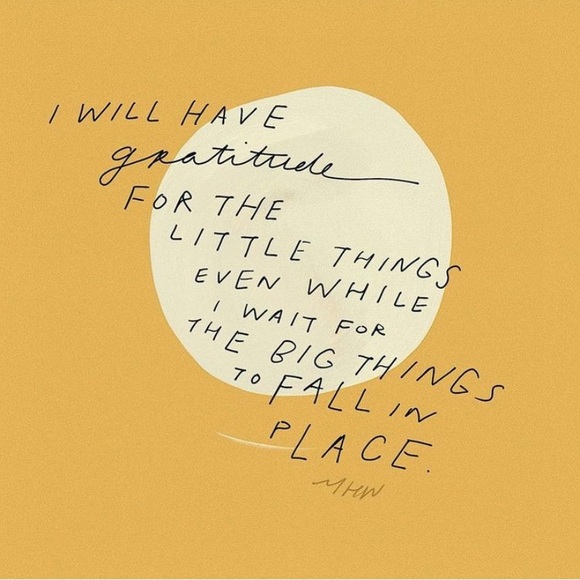 I WILL HAVE
gratitude
FOR THE
LITTLE THINGS
EVEN WHILE
I WAIT FOR
THE BIG THINGS
TO FALL IN
PLACE.
MHW